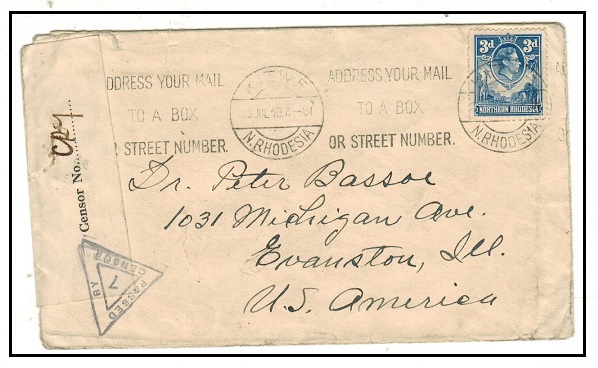 ADDRESS YOUR MAIL
TO A BOX
OR STREET NUMBER.
KITWE
JUL 40
N. RHODESIA
ADDRESS YOUR MAIL
TO A BOX
OR STREET NUMBER.
3d 3d
NORTHERN RHODESIA
N. RHODESIA
Censor No.
PASSED
BY
CENSOR
7
Dr. Peter Bassoe
1031 Michigan Ave.
Evanston, Ill.
U.S. America